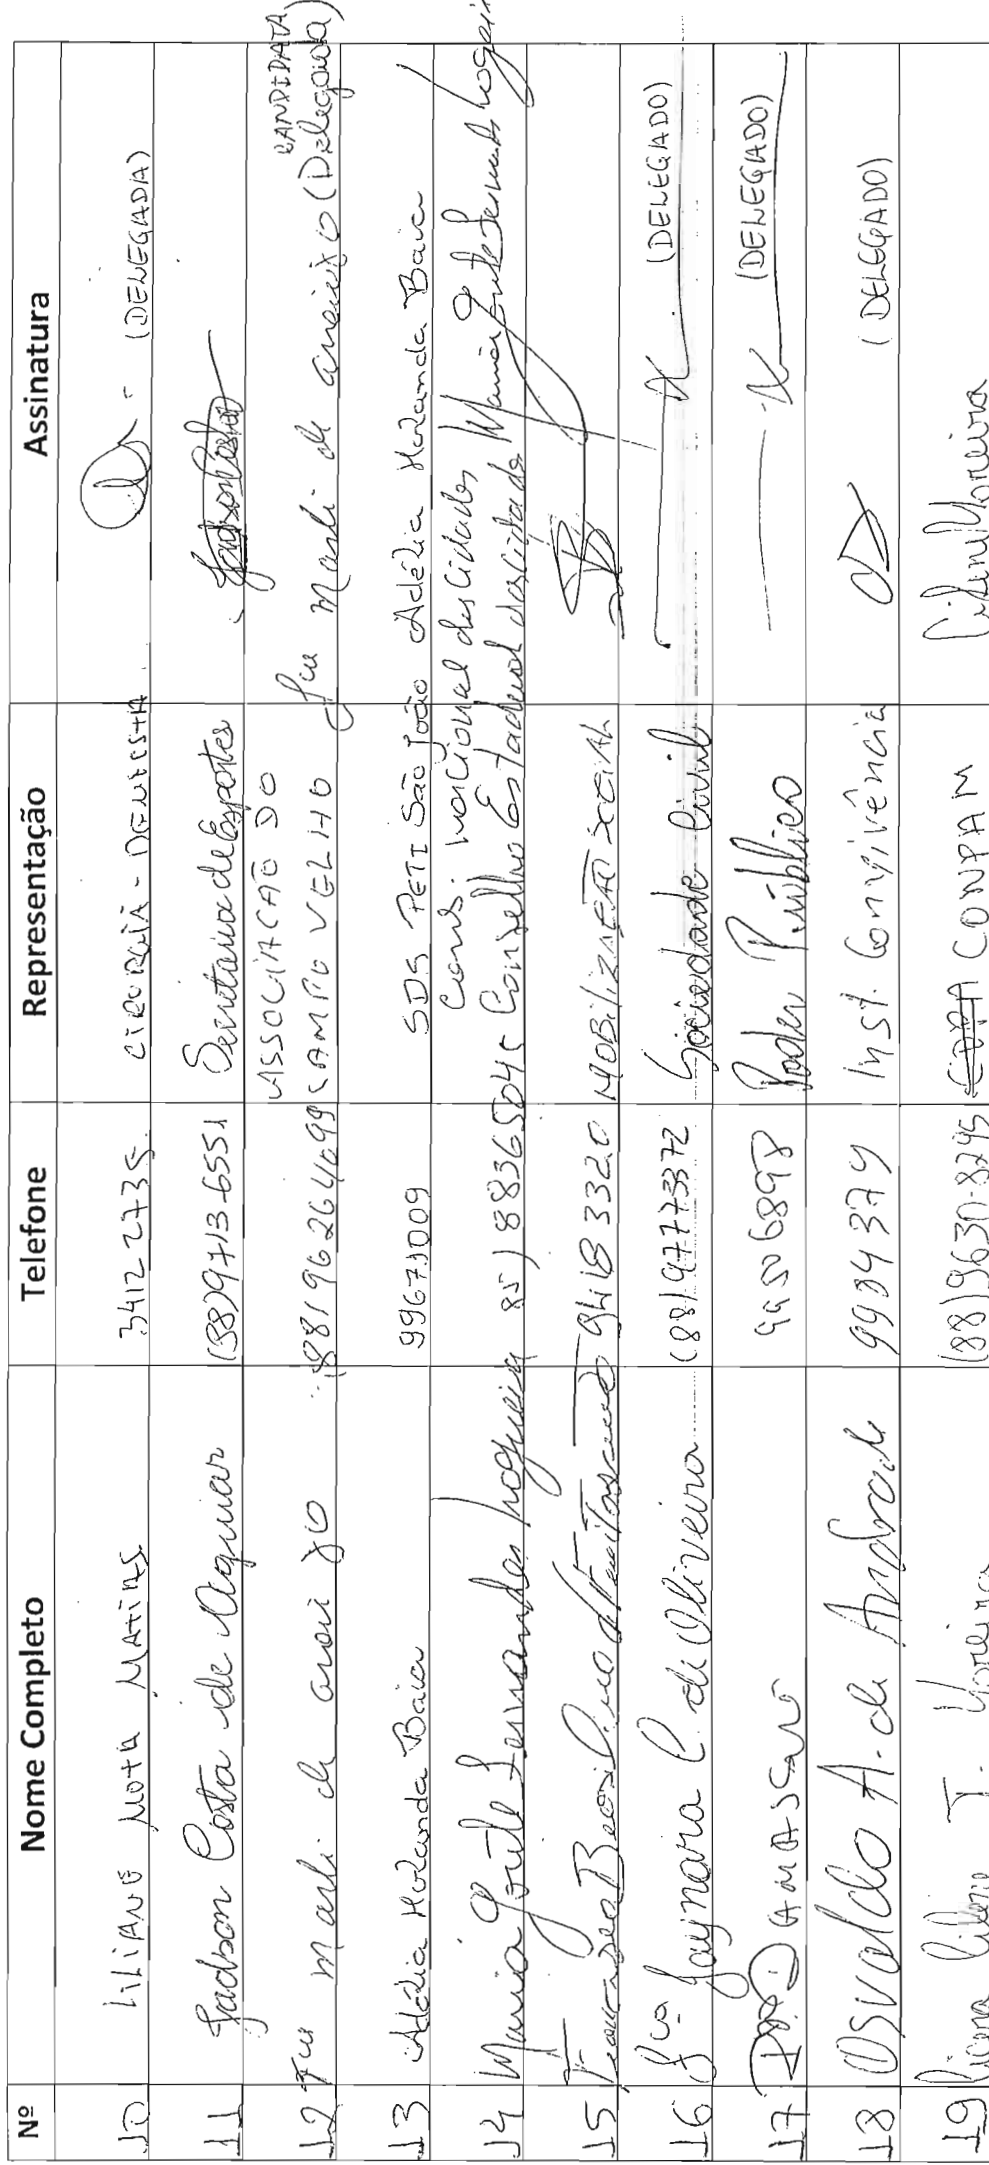 Nº Nome Completo Telefone Representação Assinatura
10 LILIANE MOTA MATIAS 3412 2735 CIRURGIÃ-DENTISTA (DELEGADA)
11 Jadson Costa de Aguiar (88)9713-6551 Secretaria de Esportes
12 Fca Marli de araujo (88)96264699 ASSOCIAÇÃO DO CAMPO VELHO Fca Marli de araujo (Delegada) CANDIDATA
13 Adélia Holanda Baia 99671009 SDS PETI São João Adélia Holanda Baia
14 Maria Gorete Fernandes Nogueira 85) 88365045 Cons. Nacional das Cidades Conselho Estadual das Cidades Maria Gorete Fernandes Nogueira
15 9418 3320 MOBILIZAÇÃO SOCIAL
16 Fca Jaynara C. de Oliveira (88)97773372 Sociedade Civil (DELEGADO)
17 DAMASCENO 99506898 Poder Público (DELEGADO)
18 Osvaldo A. de Andrade 9994379 Inst. Convivência (DELEGADO)
19 Cicera Cilene T. Moreira (88)9630-8295 CONPAM Cilene Moreira